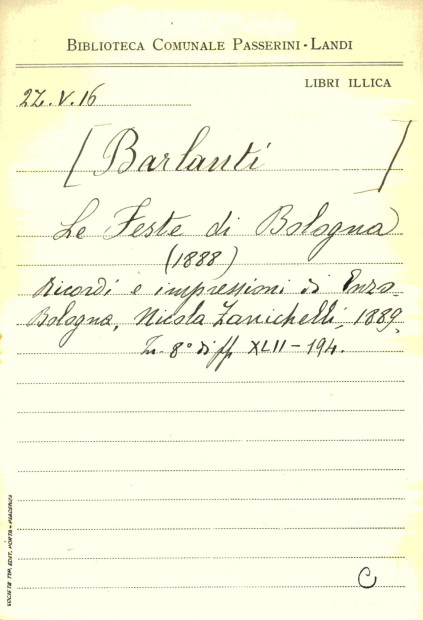 BIBLIOTECA COMUNALE PASSERINI-LANDI
LIBRI ILLICA
2Z.V.16
[Barlanti]
Le Feste di Bologna
(1888)
Ricordi e impressioni di Enzo-
Bologna, Nicola Zanichelli, 1889.
In 8° di ff XLII-194.
C
SOCIETÀ TIP. EDIT. PORTA - PIACENZA